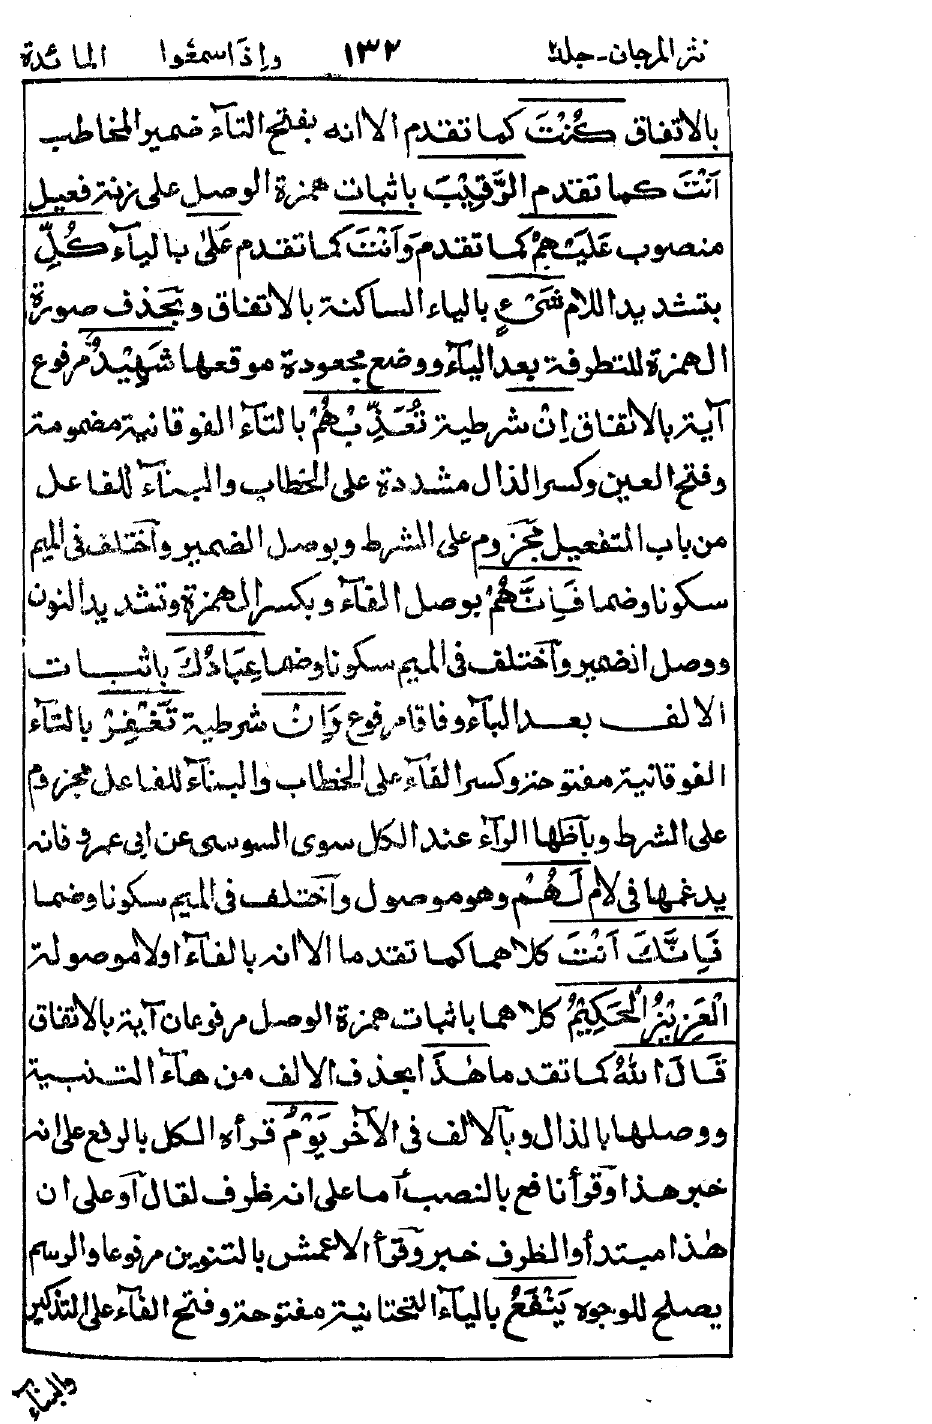 نثر المرجان - جلد٢ ١٣٢ واذا سمعوا المائدة
بالاتفاق كُنْتَ كما تقدم الا انه بفتح التآء ضمير المخاطب
اَنْتَ كما تقدم الرَّقِيْبَ باثبات همزة الوصل على زنة فعيل
منصوب عَلَيْهِمْ كما تقدم وَاَنْتَ كما تقدم عَلٰى بالياء كُلِّ
بتشديد اللام شَىْءٍ بالياء الساكنة بالاتفاق وبحذف صورة
الهمزة المتطرفة بعد اليآء ووضع مجعودة موقعها شَهِيْدٌ مرفوع
آية بالاتفاق اِنْ شرطية تُعَذِّبْهُمْ بالتآء الفوقانية مضمومة
وفتح العين وكسر الذال مشددة على الخطاب والبنآء للفاعل
من باب التفعيل مجزوم على الشرط وبوصل الضمير واختلف فى الميم
سكونا وضما فَاِنَّهُمْ بوصل الفآء وبكسر الهمزة وتشديد النون
ووصل الضمير واختلف فى الميم سكونا وضما عِبَادُكَ باثبات
الالف بعد البآء وفاقا مرفوع وَاِنْ شرطية تَغْفِرْ بالتآء
الفوقانية مفتوحة وكسر الفآء على الخطاب والبنآء للفاعل مجزوم
على الشرط وباظهار الرآء عند الكل سوى السوسى عن ابى عمرو فانه
يدغمها فى لام لَهُمْ وهو موصول واختلف فى الميم سكونا وضما
فَاِنَّكَ اَنْتَ كلاهما كما تقدما الا انه بالفآء اولا موصولة
الْعَزِيْزُ الْحَكِيْمُ كلاهما باثبات همزة الوصل مرفوعان آية بالاتفاق
قَالَ اللهُ كما تقدما هٰذَا بحذف الالف من هآء التنبية
ووصلها بالذال وبالالف فى الآخر يَوْمُ قرأه الكل بالرفع على انه
خبر هذا وقرأ نافع بالنصب اما على انه ظرف لقال او على ان
هٰذا مبتدأ والظرف خبر وقرأ الاعمش بالتنوين مرفوعا والرسم
يصلح للوجوه يَنْفَعُ باليآء التحتانية مفتوحة وفتح الفآء على التذكير
والبنآء